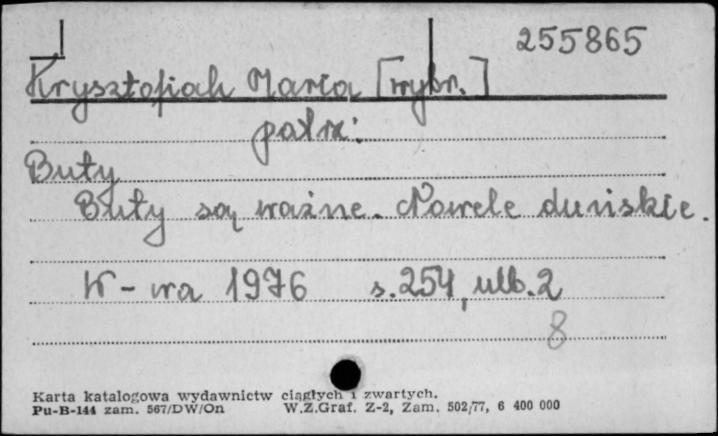 255865
Krysztofiak Maria [wybr.]
patrz:
Buty
Buty są ważne. Nowele duńskie.
W-wa 1976 s. 254, nlb. 2
8
Karta katalogowa wydawnictw ciągłych i zwartych.
Pu-B-144 zam. 567/DW/On W.Z.Graf. Z-2, Zam. 502/77, 6 400 000